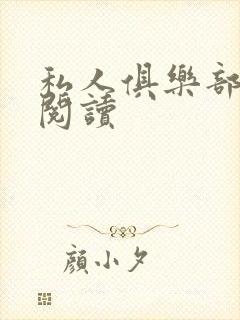 私人俱樂部
閱讀
顏小夕